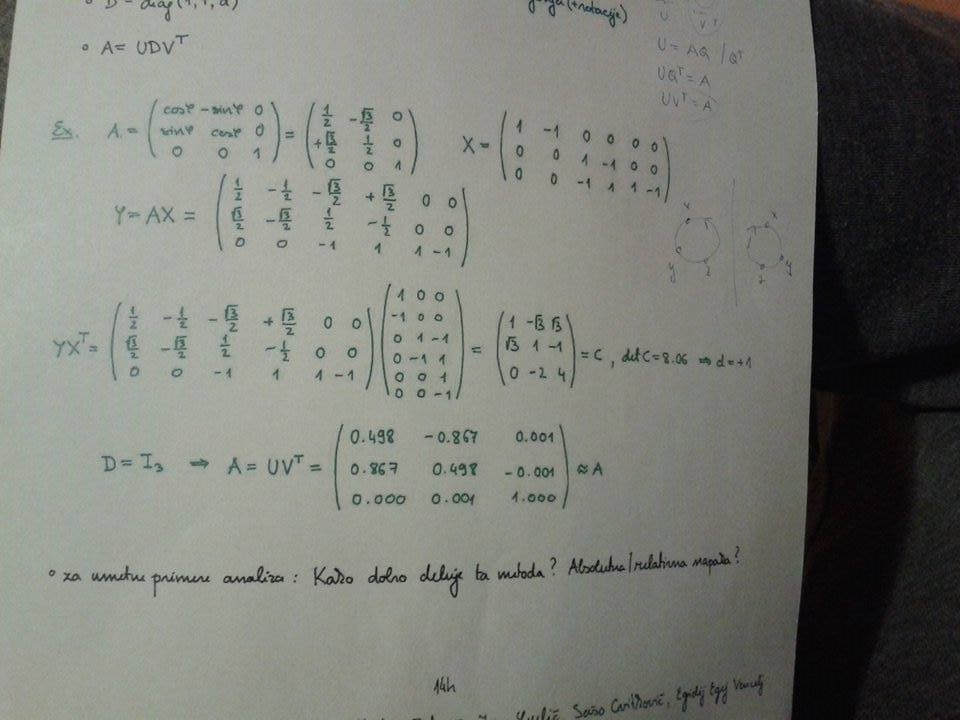 ° D = diag(1, 1, d)
(+rotacije)
° A = UDVᵀ
U
Vᵀ
U = AQ / Qᵀ
UQᵀ = A
UVᵀ = A
Ex. A = (cosφ −sinφ 0; sinφ cosφ 0; 0 0 1) = (1/2 −√3/2 0; +√3/2 1/2 0; 0 0 1) X = (1 −1 0 0 0 0; 0 0 1 −1 0 0; 0 0 −1 1 1 −1)
Y = AX = (1/2 −1/2 −√3/2 +√3/2 0 0; √3/2 −√3/2 1/2 −1/2 0 0; 0 0 −1 1 1 −1)
x y z x y z
YXᵀ = (1/2 −1/2 −√3/2 +√3/2 0 0; √3/2 −√3/2 1/2 −1/2 0 0; 0 0 −1 1 1 −1) (1 0 0; −1 0 0; 0 1 −1; 0 −1 1; 0 0 1; 0 0 −1) = (1 −√3 √3; √3 1 −1; 0 −2 4) = C, det C = 8.06 ⇒ d = +1
D = I₃ ⇒ A = UVᵀ = (0.498 −0.867 0.001; 0.867 0.498 −0.001; 0.000 0.001 1.000) ≈ A
° za umetne primere analiza : Kako dobro deluje ta metoda? Absolutna/relativna napaka?
14h